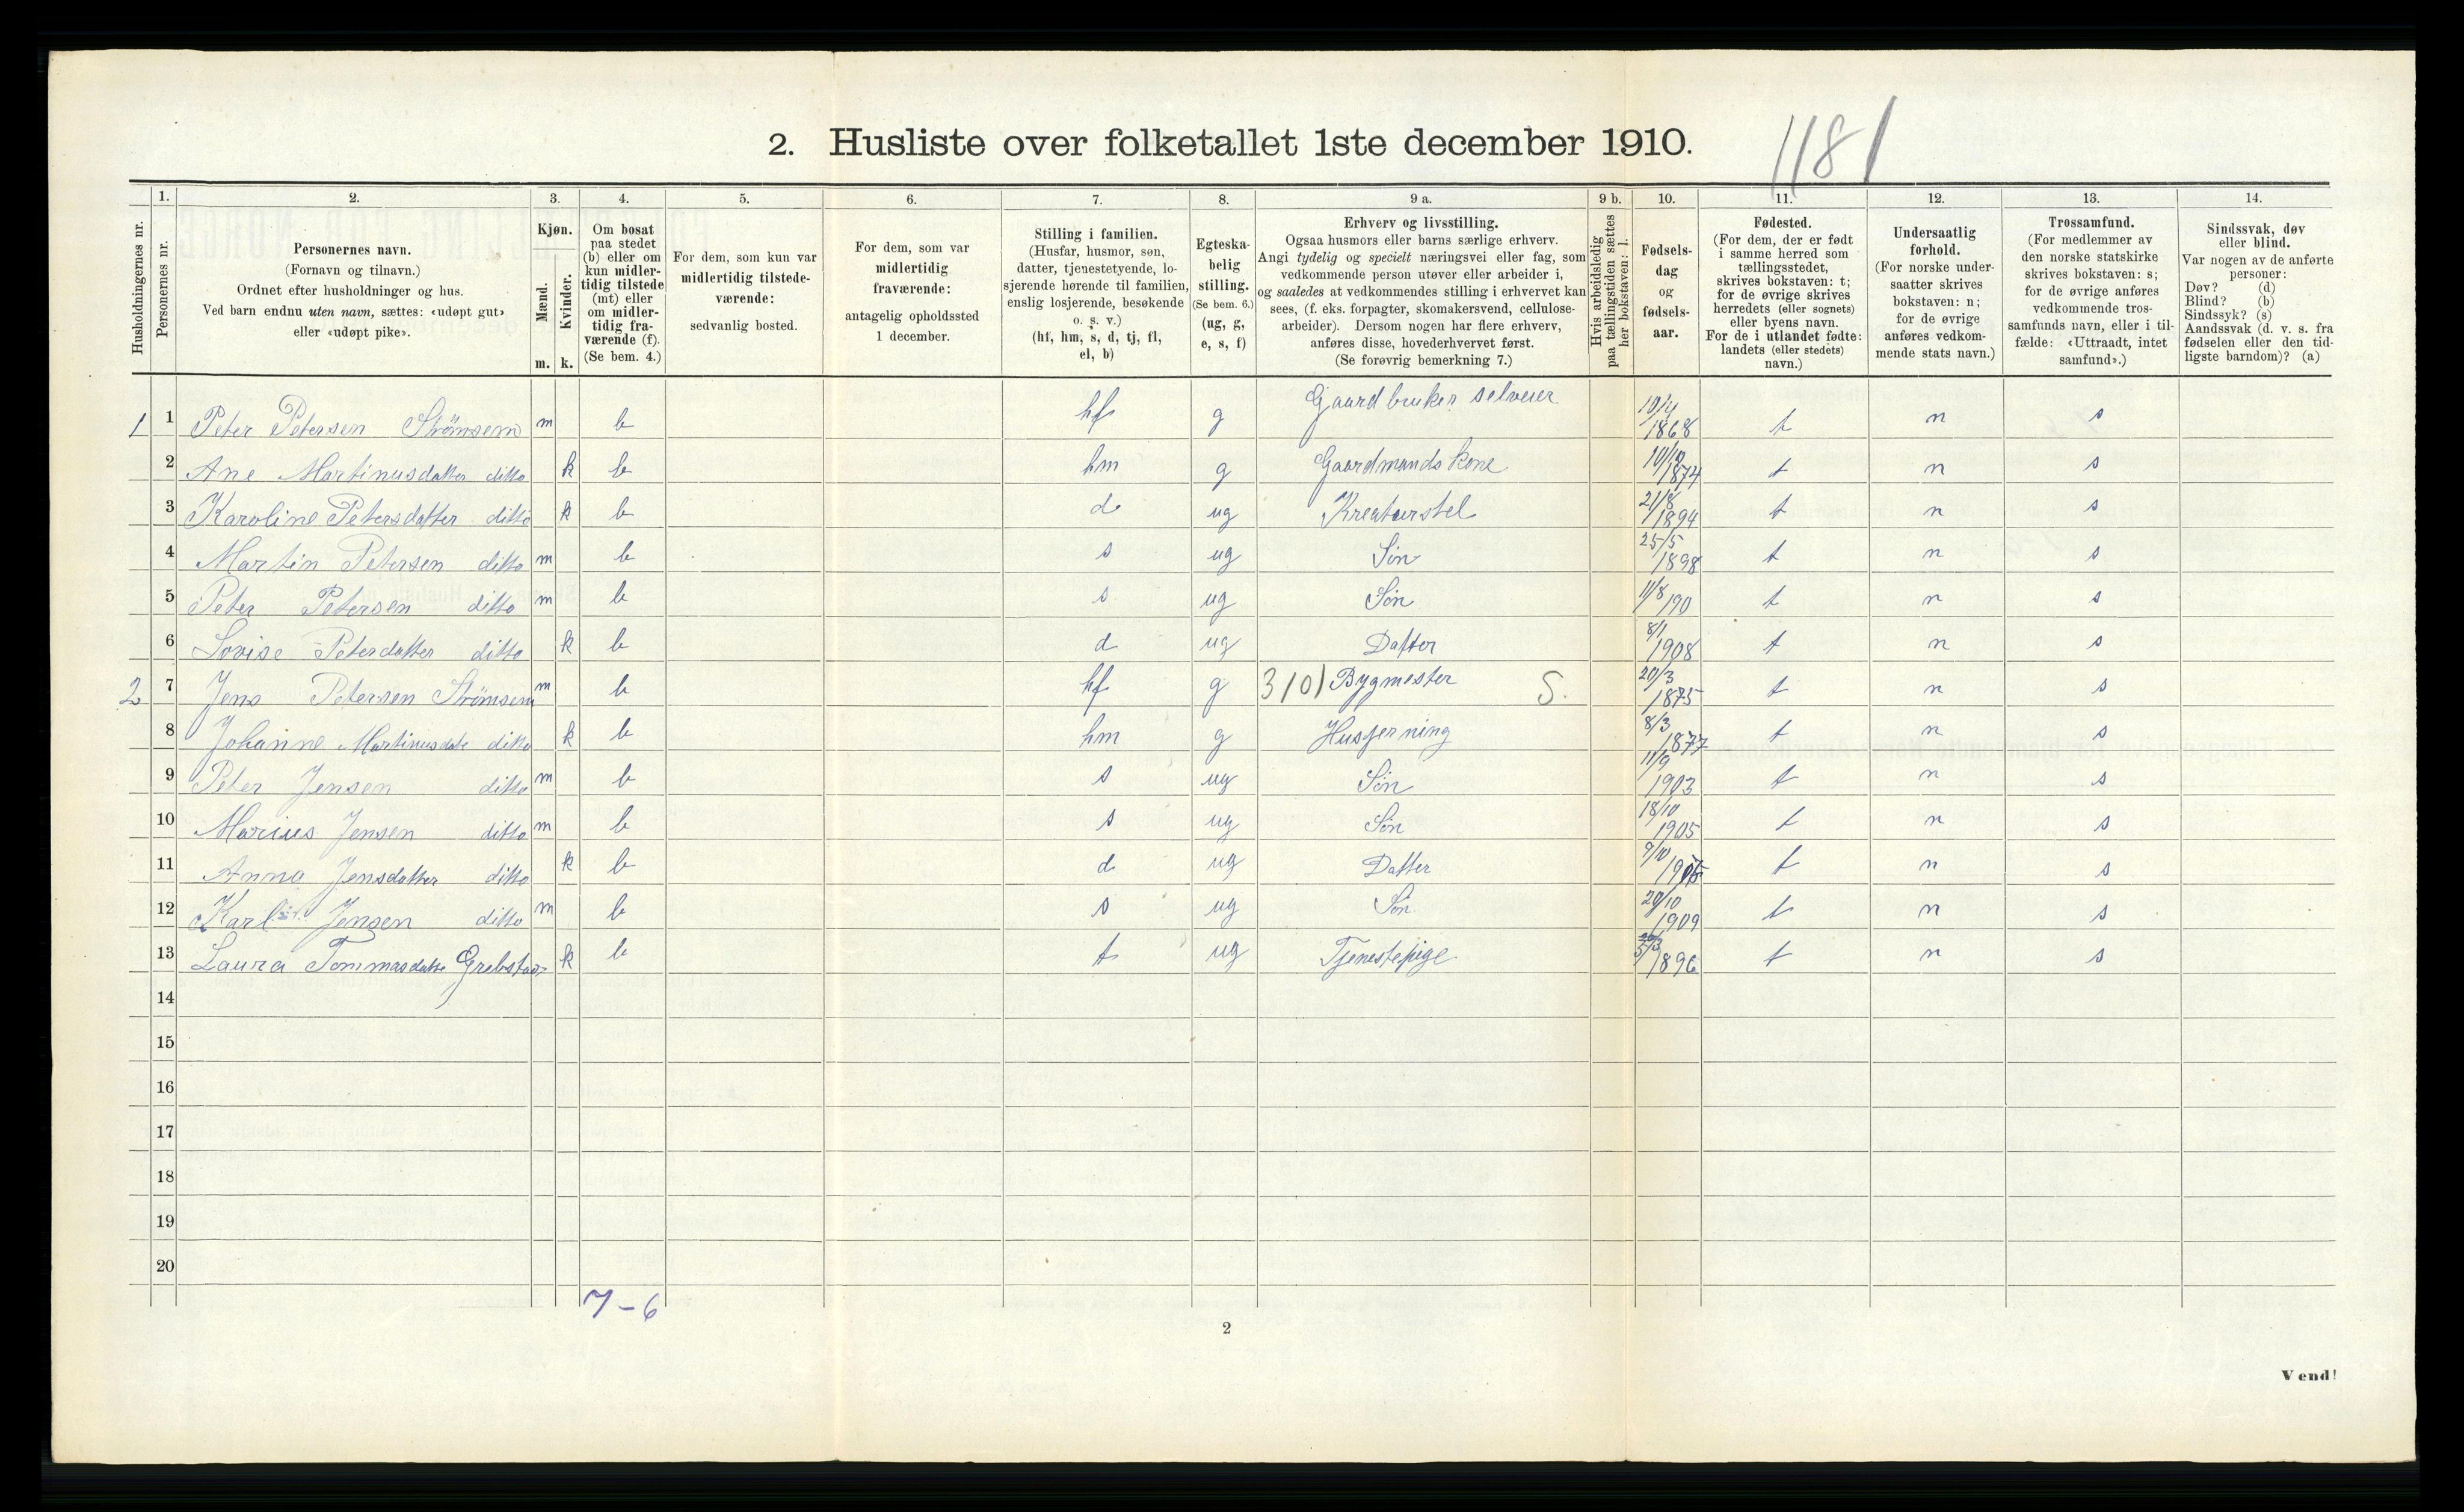 2. Husliste over folketallet 1ste december 1910.
1181
1. 2. 3. 4. 5. 6. 7. 8. 9 a. 9 b. 10. 11. 12. 13. 14.
Husholdningernes nr.
Personernes nr.
Personernes navn.
(Fornavn og tilnavn.)
Ordnet efter husholdninger og hus.
Ved barn endnu uten navn, sættes: «udøpt gut»
eller «udøpt pike».
Kjøn.
Mænd.
Kvinder.
m. k.
Om bosat
paa stedet
(b) eller om
kun midler-
tidig tilstede
(mt) eller
om midler-
tidig fra-
værende (f).
(Se bem. 4.)
For dem, som kun var
midlertidig tilstede-
værende:
sedvanlig bosted.
For dem, som var
midlertidig
fraværende:
antagelig opholdssted
1 december.
Stilling i familien.
(Husfar, husmor, søn,
datter, tjenestetyende, lo-
sjerende hørende til familien,
enslig losjerende, besøkende
o. s. v.)
(hf, hm, s, d, tj, fl,
el, b)
Egteska-
belig
stilling.
(Se bem. 6.)
(ug, g,
e, s, f)
Erhverv og livsstilling.
Ogsaa husmors eller barns særlige erhverv.
Angi tydelig og specielt næringsvei eller fag, som
vedkommende person utøver eller arbeider i,
og saaledes at vedkommendes stilling i erhvervet kan
sees, (f. eks. forpagter, skomakersvend, cellulose-
arbeider). Dersom nogen har flere erhverv,
anføres disse, hovederhvervet først.
(Se forøvrig bemerkning 7.)
Hvis arbeidsledig
paa tællingstiden sættes
her bokstaven: l.
Fødsels-
dag
og
fødsels-
aar.
Fødested.
(For dem, der er født
i samme herred som
tællingsstedet,
skrives bokstaven: t;
for de øvrige skrives
herredets (eller sognets)
eller byens navn.
For de i utlandet fødte:
landets (eller stedets)
navn.)
Undersaatlig
forhold.
(For norske under-
saatter skrives
bokstaven: n;
for de øvrige
anføres vedkom-
mende stats navn.)
Trossamfund.
(For medlemmer av
den norske statskirke
skrives bokstaven: s;
for de øvrige anføres
vedkommende tros-
samfunds navn, eller i til-
fælde: «Uttraadt, intet
samfund».)
Sindssvak, døv
eller blind.
Var nogen av de anførte
personer:
Døv? (d)
Blind? (b)
Sindssyk? (s)
Aandssvak (d. v. s. fra
fødselen eller den tid-
ligste barndom)? (a)
1 1 Peter Petersen Strömsem m b hf g Gaardbruker selveier 10/4 1868 t n s
2 Ane Martinusdatter ditto k b hm g Gaardmands kone 1874 t n s
3 Karoline Petersdatter ditto k b d ug Kreaturstel 21/8 1894 t n s
4 Martin Petersen ditto m b s ug Sön 25/5 1898 t n s
5 Peter Petersen ditto m b s ug Sön 11/8 190 t n s
6 Lovise Petersdatter ditto k b d ug Datter 8/1 1908 t n s
2 7 Jens Petersen Strömsem m b hf g 3101 Bygmester S. 20/3 1875 t n s
8 Johanne Martinusdatr ditto k b hm g Husgerning 8/3 1877 t n s
9 Peter Jensen ditto m b s ug Sön 11/9 1903 t n s
10 Marius Jensen ditto m b s ug Sön 18/10 1905 t n s
11 Anna Jensdatter ditto k b d ug Datter 9/10 t n s
12 Karl Jensen ditto m b s ug Sön 20/10 1909 t n s
13 Laura Tommasdatter Grebstad k b t ug Tjenestepige 1896 t n s
14
15
16
17
18
19
20
7-6
2
Vend!